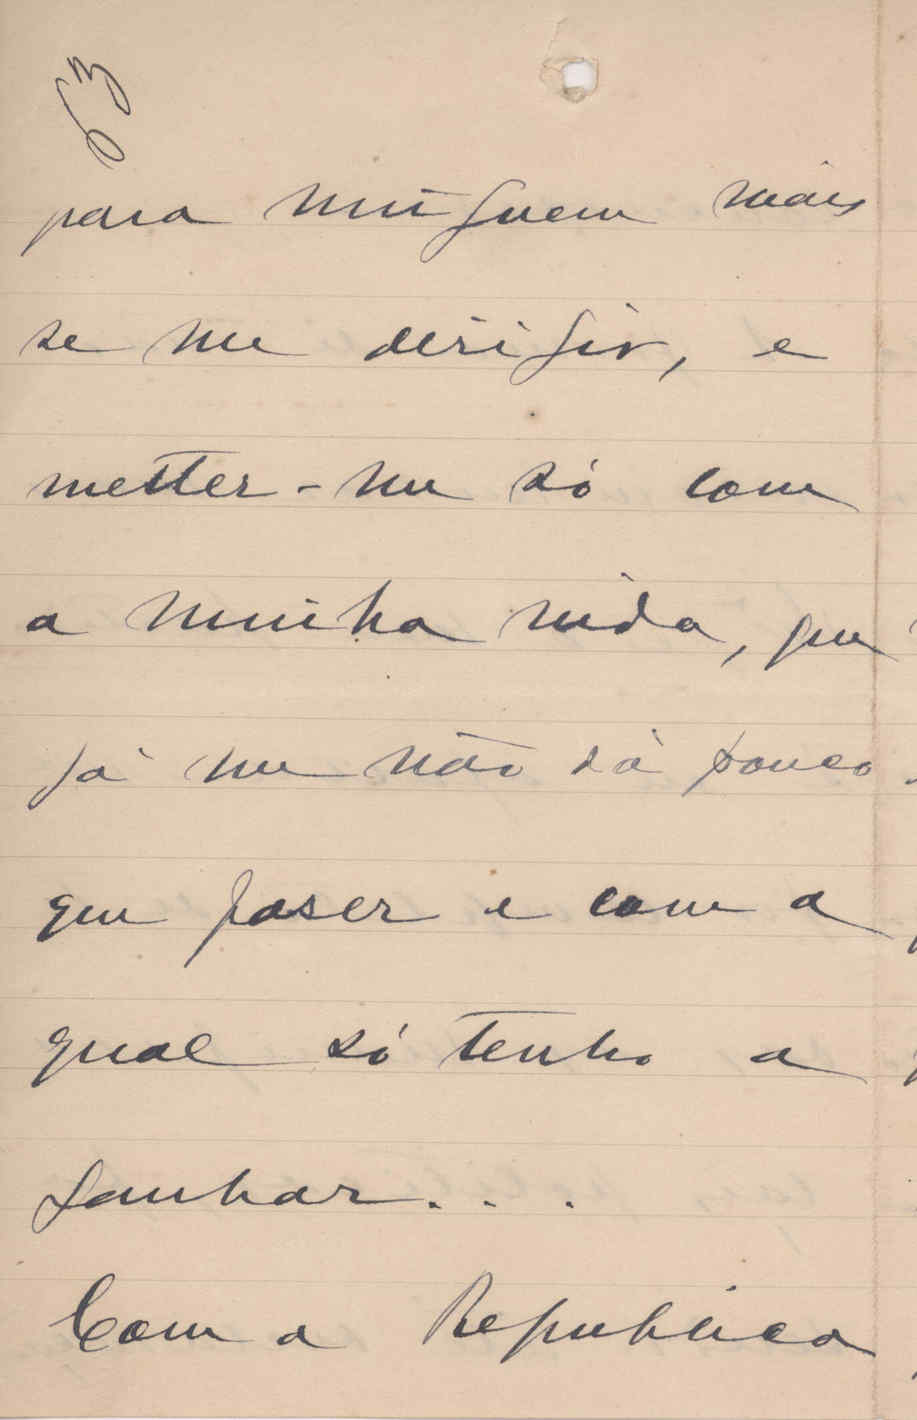 63
para ninguem mais
se me derigir, e
metter-me só com
a minha vida, que
já me não dá pouco
que faser e com a
qual só tenho a
ganhar...
Com a Republica